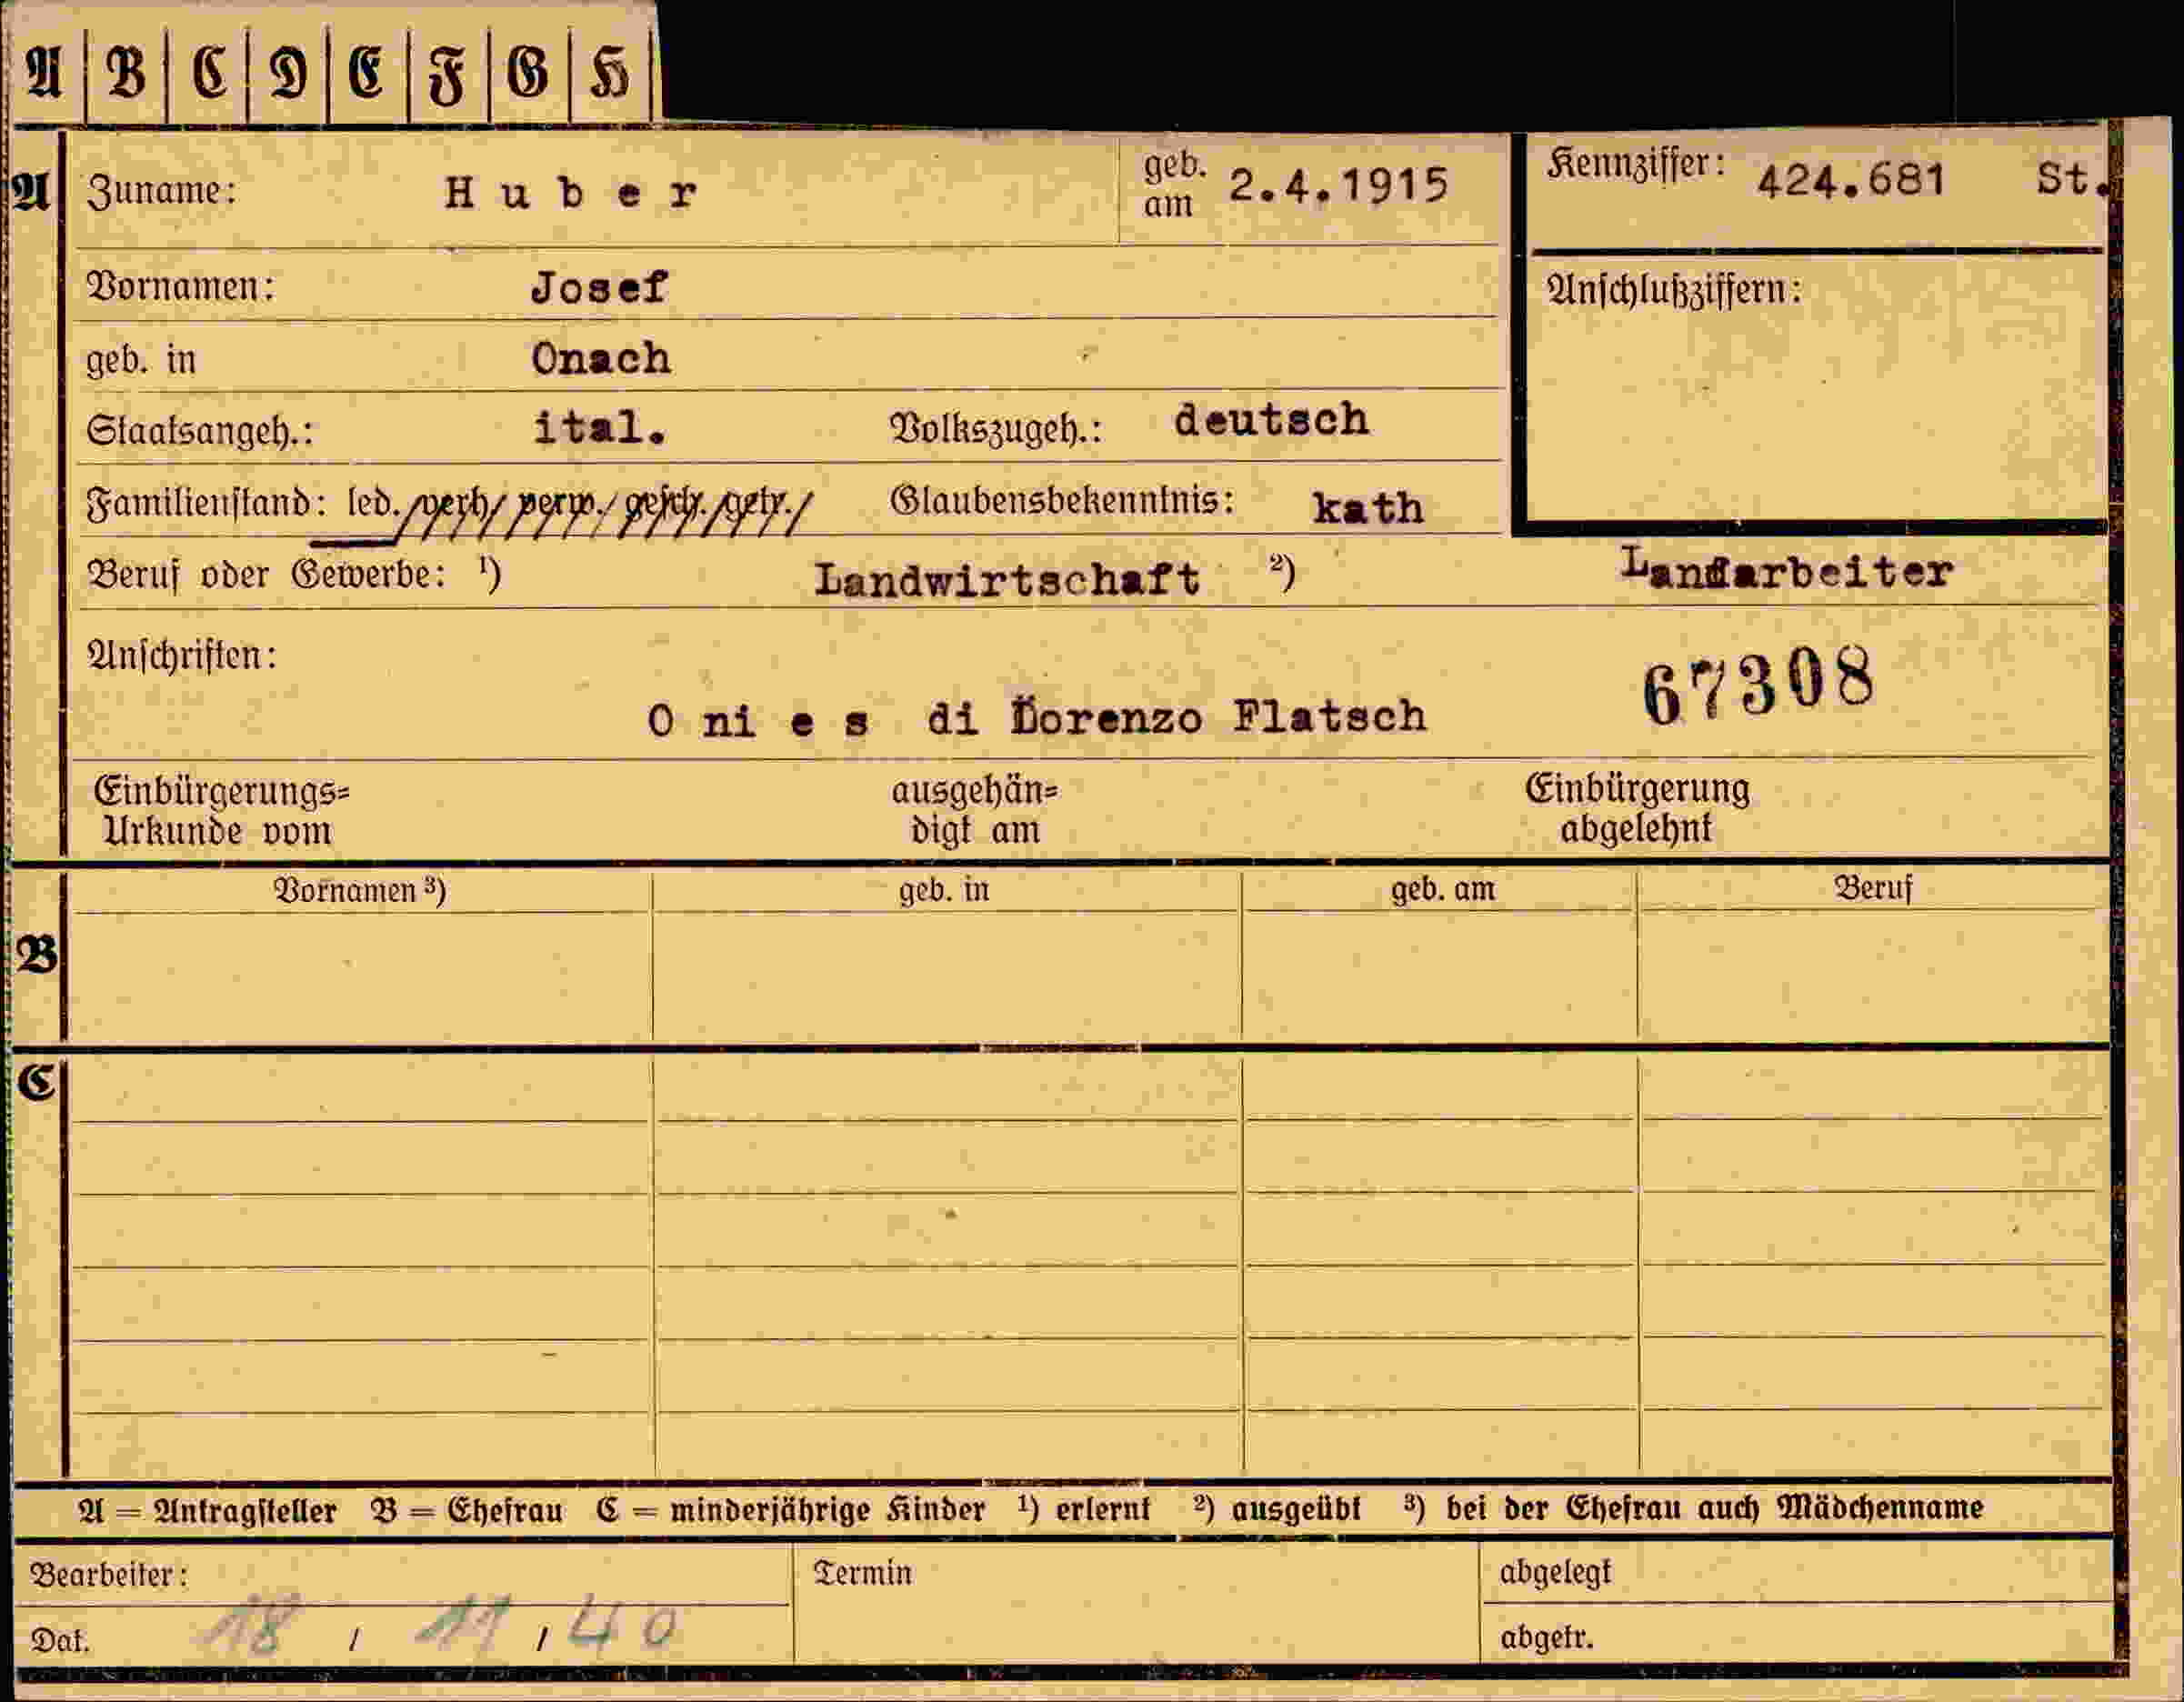 A B C D E F G H
A Zuname: Huber geb. am 2.4.1915 Kennziffer: 424.681 St.
Vornamen: Josef Anschlußziffern:
geb. in Onach
Staatsangeh.: ital. Volkszugeh.: deutsch
Familienstand: led. verh/ verw./ gesch. getr./ Glaubensbekenntnis: kath
Beruf oder Gewerbe: ¹) Landwirtschaft ²) Landarbeiter
Anschriften: 67308
O ni e s di Lorenzo Flatsch
Einbürgerungs= ausgehän= Einbürgerung
Urkunde vom digt am abgelehnt
Vornamen ³) geb. in geb. am Beruf
B
C
A = Antragsteller B = Ehefrau C = minderjährige Kinder ¹) erlernt ²) ausgeübt ³) bei der Ehefrau auch Mädchenname
Bearbeiter: Termin abgelegt
Dat. 18 / 11 / 40 abgetr.